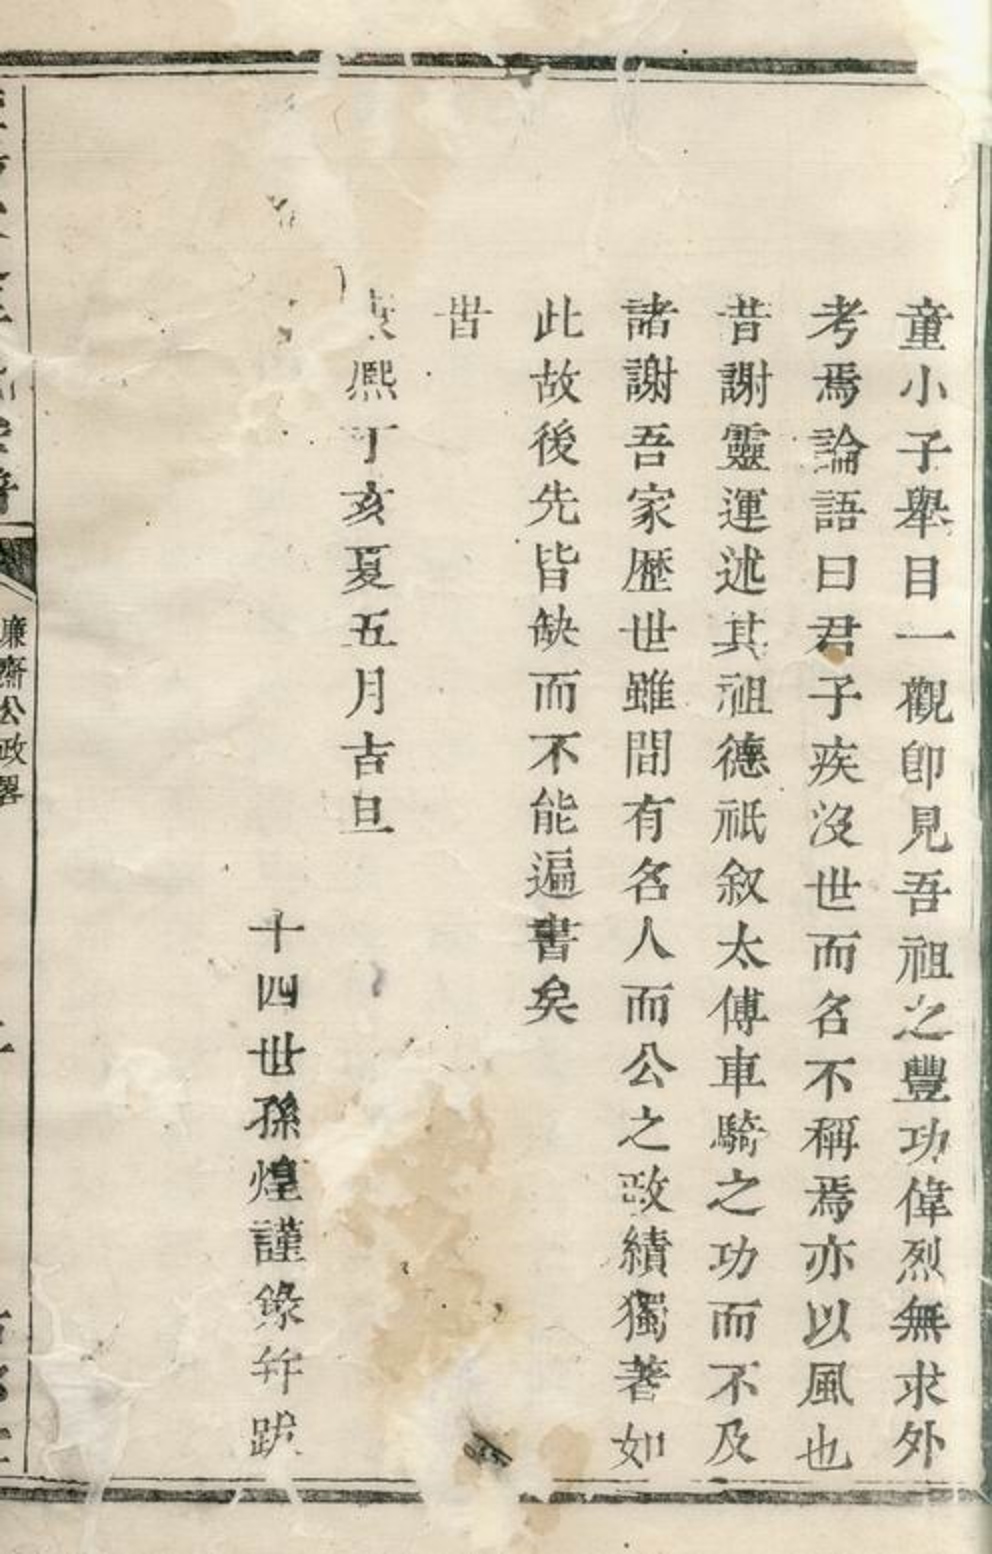 童小子舉目一觀卽見吾祖之豐功偉烈無求外
考焉論語曰君子疾沒世而名不稱焉亦以風也
昔謝靈運述其祖德祇叙太傅車騎之功而不及
諸謝吾家歷世雖間有名人而公之政績獨著如
此故後先皆缺而不能遍書矣
旹
康熙丁亥夏五月吉旦
十四世孫煌謹錄并跋
廉齋公政畧